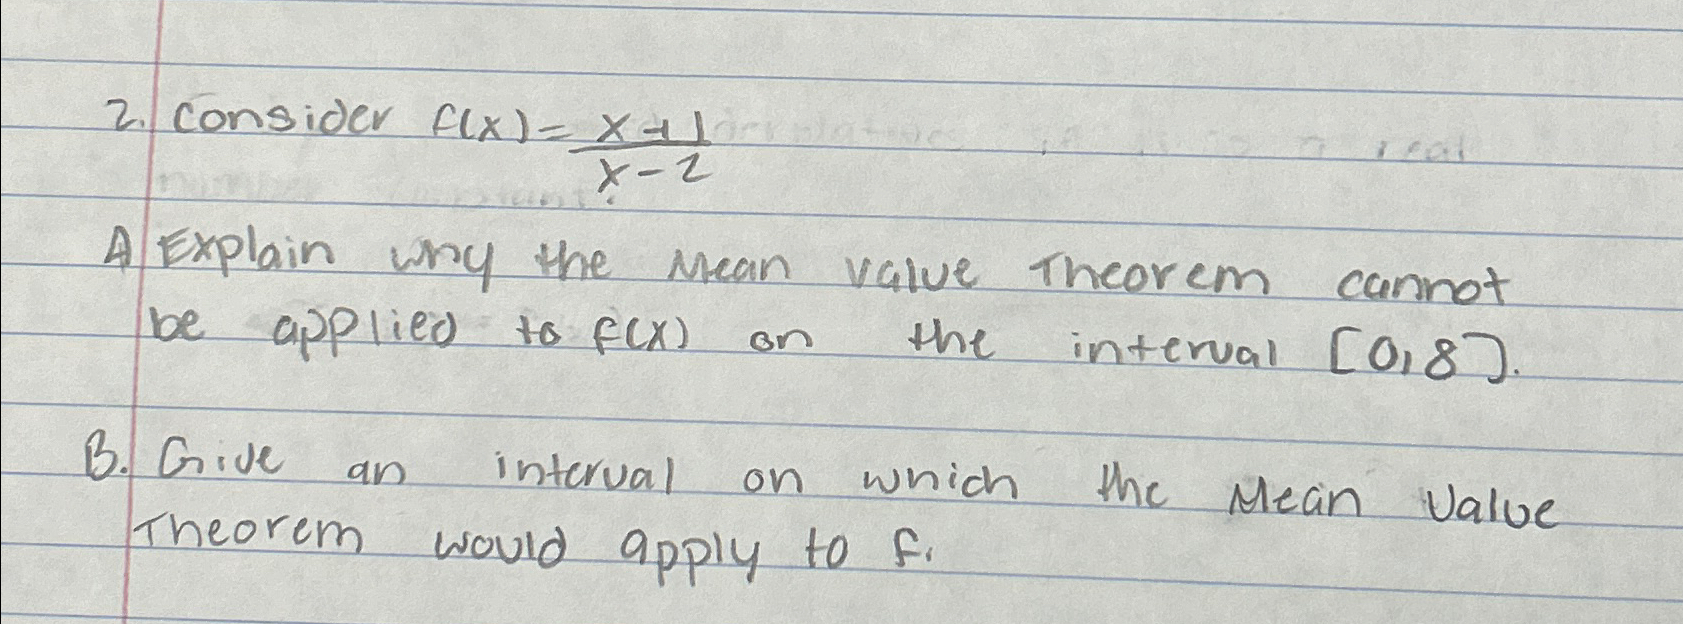 2. Consider f(x) = x+1
x-2
A Explain why the Mean Value Theorem cannot
be applied to f(x) on the interval [0,8].
B. Give an interval on which the Mean Value
Theorem would apply to f.